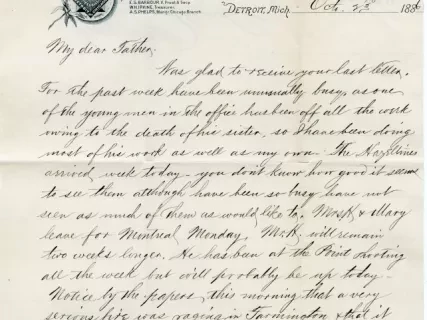 E.S. BARBOUR, V. Prest & Secy
WM. H. PAINE, Treasurer
A.S. PHELPS, Mang'r Chicago Branch
DETROIT, Mich. Oct. 23 188
My dear Father,
Was glad to receive your last letter.
For the past week have been unusually busy, as one
of the young men in the office has been off all the week
owing to the death of his sister, so I have been doing
most of his work as well as my own. The
arrived week today - you don't know how good it seems
to see them although have been so busy have not
seen as much of them as would like to. Mrs K & Mary
leave for Montreal Monday. Mr K. will remain
two weeks longer. He has been at the Point shooting
all the week but will probably be up today -
Notice by the papers this morning that a very
serious fire was raging in Farmington & that it